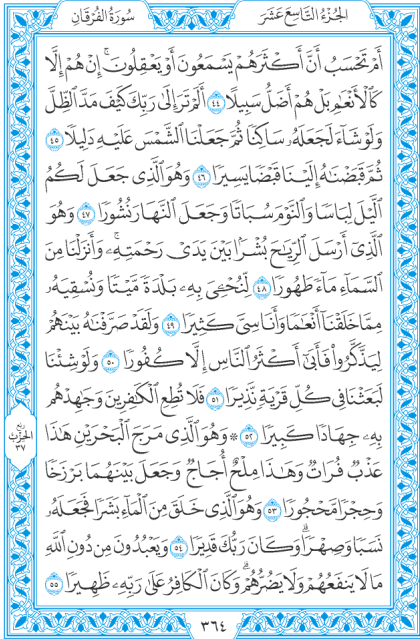 الجزء التاسع عشر
سورة الفرقان
أَمْ تَحْسَبُ أَنَّ أَكْثَرَهُمْ يَسْمَعُونَ أَوْ يَعْقِلُونَ ۚ إِنْ هُمْ إِلَّا
كَالْأَنْعَٰمِ بَلْ هُمْ أَضَلُّ سَبِيلًا ٤٤ أَلَمْ تَرَ إِلَىٰ رَبِّكَ كَيْفَ مَدَّ الظِّلَّ
وَلَوْ شَاءَ لَجَعَلَهُۥ سَاكِنًا ثُمَّ جَعَلْنَا الشَّمْسَ عَلَيْهِ دَلِيلًا ٤٥
ثُمَّ قَبَضْنَٰهُ إِلَيْنَا قَبْضًا يَسِيرًا ٤٦ وَهُوَ الَّذِي جَعَلَ لَكُمُ
الَّيْلَ لِبَاسًا وَالنَّوْمَ سُبَاتًا وَجَعَلَ النَّهَارَ نُشُورًا ٤٧ وَهُوَ
الَّذِي أَرْسَلَ الرِّيَٰحَ بُشْرًا بَيْنَ يَدَيْ رَحْمَتِهِۦ ۚ وَأَنزَلْنَا مِنَ
السَّمَاءِ مَاءً طَهُورًا ٤٨ لِّنُحْۦِيَ بِهِۦ بَلْدَةً مَّيْتًا وَنُسْقِيَهُۥ
مِمَّا خَلَقْنَا أَنْعَٰمًا وَأَنَاسِيَّ كَثِيرًا ٤٩ وَلَقَدْ صَرَّفْنَٰهُ بَيْنَهُمْ
لِيَذَّكَّرُوا فَأَبَىٰ أَكْثَرُ النَّاسِ إِلَّا كُفُورًا ٥٠ وَلَوْ شِئْنَا
لَبَعَثْنَا فِي كُلِّ قَرْيَةٍ نَّذِيرًا ٥١ فَلَا تُطِعِ الْكَٰفِرِينَ وَجَٰهِدْهُم
بِهِۦ جِهَادًا كَبِيرًا ٥٢ ۞ وَهُوَ الَّذِي مَرَجَ الْبَحْرَيْنِ هَٰذَا
عَذْبٌ فُرَاتٌ وَهَٰذَا مِلْحٌ أُجَاجٌ وَجَعَلَ بَيْنَهُمَا بَرْزَخًا
وَحِجْرًا مَّحْجُورًا ٥٣ وَهُوَ الَّذِي خَلَقَ مِنَ الْمَاءِ بَشَرًا فَجَعَلَهُۥ
نَسَبًا وَصِهْرًا ۗ وَكَانَ رَبُّكَ قَدِيرًا ٥٤ وَيَعْبُدُونَ مِن دُونِ اللَّهِ
مَا لَا يَنفَعُهُمْ وَلَا يَضُرُّهُمْ ۗ وَكَانَ الْكَافِرُ عَلَىٰ رَبِّهِۦ ظَهِيرًا ٥٥
ربع
الحزب
٣٧
٣٦٤